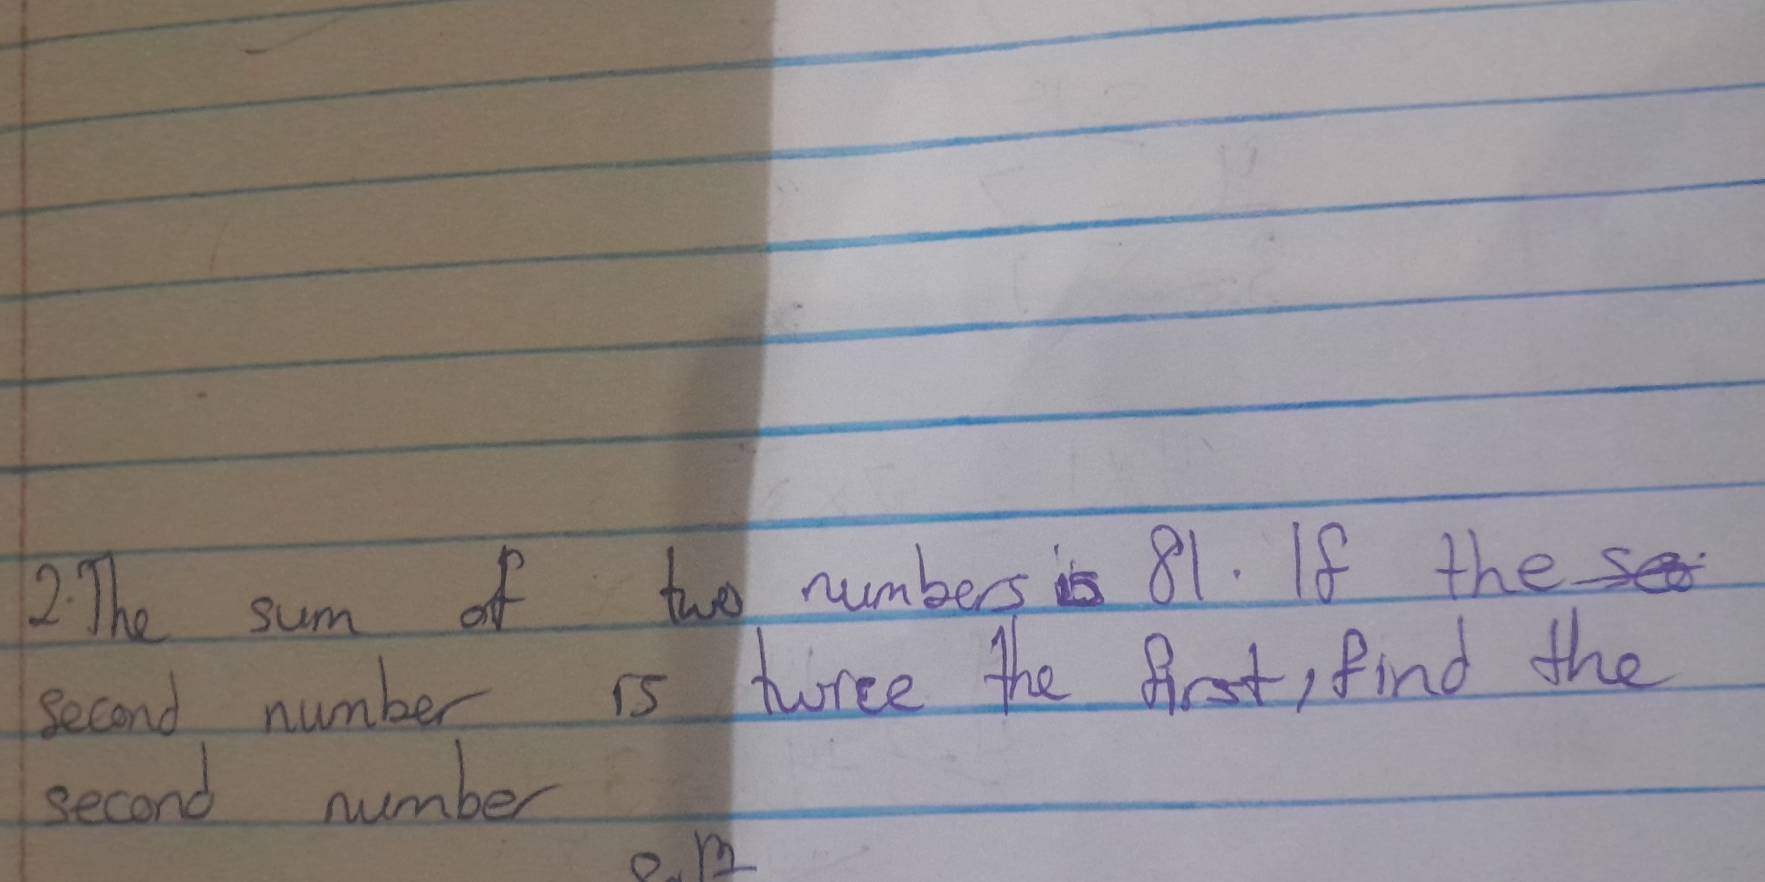 2. The sum of two numbers is 81. If the
second number is twice the first, find the
second number